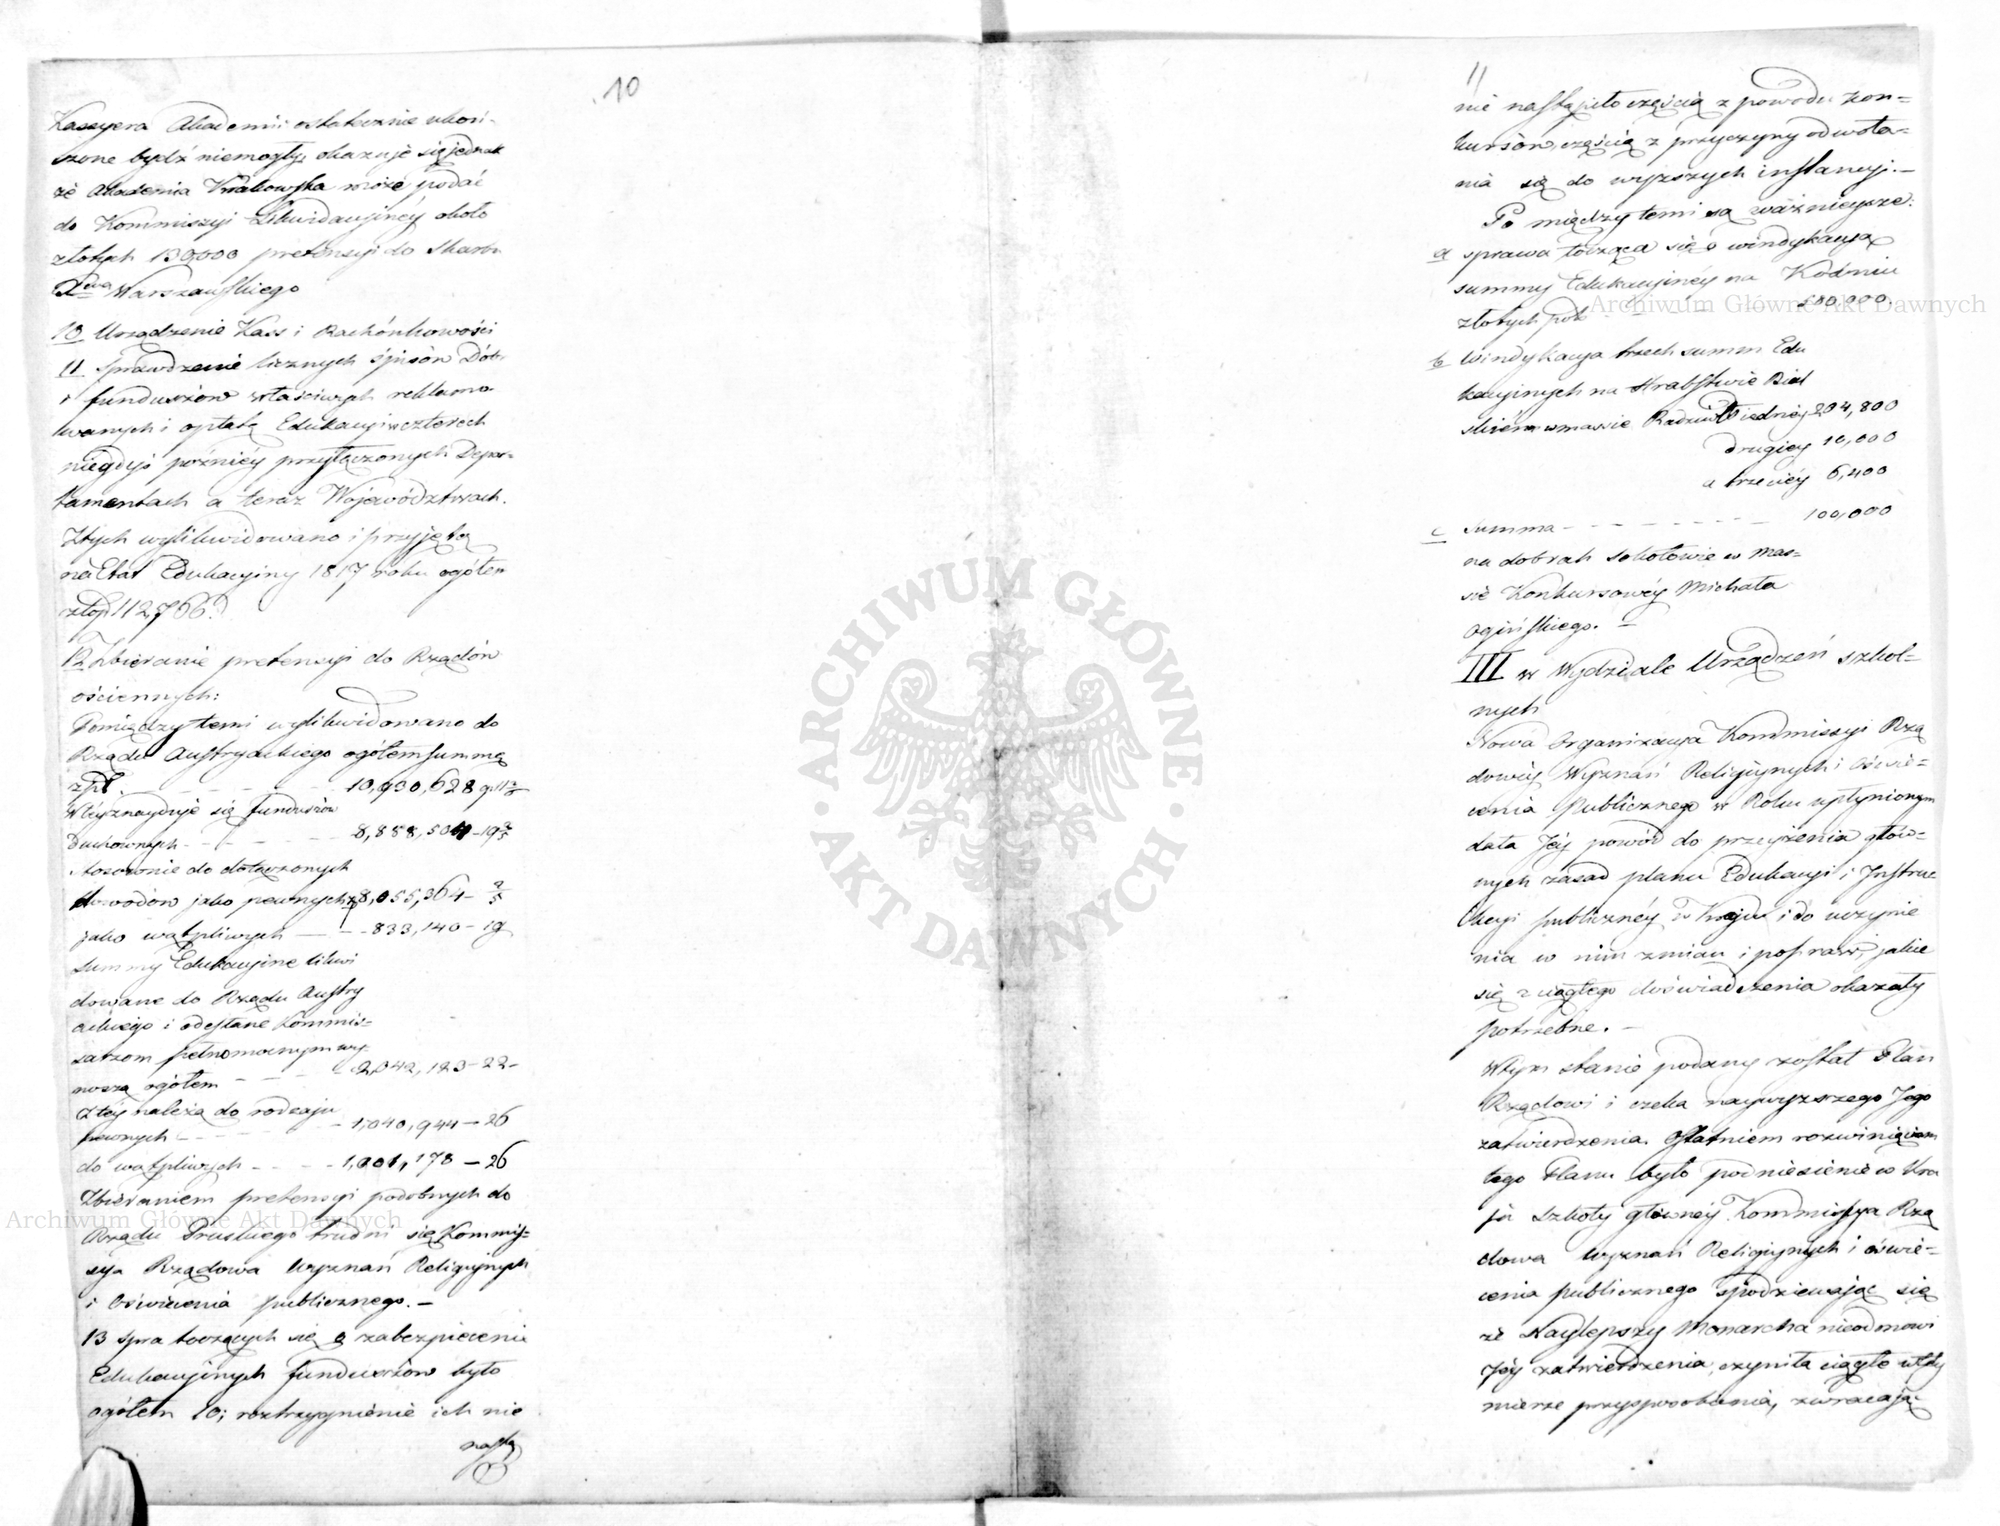 10
Kassyera Akademii ostatecznie ukoń-
czone bydź niemogły, okazuje się jednak
że Akademia Krakowska może podać
do Kommissyi Likwidacyjnéy około
złotych 130,000 pretensyi do Skarbu
Xtwa Warszawskiego
10 Urządzenie Kass i Rachónkowości
11 Sprawdzenie licznych spisów Dóbr
i funduszów właściwych reklamo
wanych i opłatą Edukacyi w czterech
niegdyś poźniéy przyłączonych Depar-
tamentach a teraz Województwach.
Ztych wylikwidowano i przyjęto
na Etat Edukacyiny 1817 roku ogółem
złop 112,766.
12 Zbieranie pretensyi do Rządów
ościennych:
Pomiędzy temi wylikwidowano do
Rządu Austryackiego ogółem summę
złp. - - - - 10,930,628 gr 11
W tey znayduje się funduszów
Duchownych - - - - 8,888,504 - 19
stosownie do dołączonych
dowodów jako pewnych zł 8,055,364 -
jako wątpliwych - - 833,140 - 19
summy Edukacyine likwi
dowane do Rządu Austry
ackiego i odesłane Kommis-
sarzom pełnomocnym wy-
noszą ogółem - - - 2,042,123 - 22 -
Ztéy należą do rodzaju
pewnych - - - - 1,040,944 - 26
do wątpliwych - - - 1,001,178 - 26
Zbieraniem pretensyi podobnych do
Rządu Pruskiego trudni się Kommis-
syja Rządowa Wyznań Religiynych
i Oświecenia publicznego. -
13 Spra toczących się o zabezpieczenie
Edukacyjnych funduszów było
ogółem 10; roztrzygnienie ich nie
nastą
11
nie nastąpiło częścią z powodu kon-
kursów, częścią z przyczyny odwoła-
nia się do wyższych instancyj. -
Po między temi są ważnieysze:
a sprawa tocząca się o windykacyą
summy Edukacyjnéy na Kodniu
złotych pol - - - 200,000.
b Windykacya trzech summ Edu
kacyjnych na Hrabstwie Bial
skiém w massie Radziwiłł iednéy 204,800
drugiey 10,000
a trzeciéy 6,400
c summa - - - - - - - 100,000
na dobrach Sokołowie w mas-
sie Konkursowéy Michała
Ogińskiego. -
III w Wydziale Urządzeń szkol-
nych
Nowa Organizacya Kommissyi Rzą
dowéy Wyznań Religiynych i Oświe-
cenia Publicznego w Roku upłynionym
dała Jéy powód do przeyrzenia głów-
nych zasad planu Edukacyi i Instruc
kcyi publicznéy w Kraju i do uczynie
nia w nim zmian i popraw, jakie
się z ciągłego doświadczenia okazały
potrzebne. -
Wtym stanie podany został Plan
Rządowi i czeka naywyższego Jego
zatwierdzenia. Ostatniem rozwinięciem
tego Planu było podniesienie w Kra
ju Szkoły głównéy. Kommissya Rzą
dowa Wyznań Religiynych i oświe-
cenia publicznego spodziewając się
że Naylepszy Monarcha nieodmowi
Jéy zatwierdzenia, czyniła ciągle w téy
mierze przysposobienia, zwracając
Archiwum Główne Akt Dawnych
Archiwum Główne Akt Dawnych
ARCHIWUM GŁÓWNE · AKT DAWNYCH ·